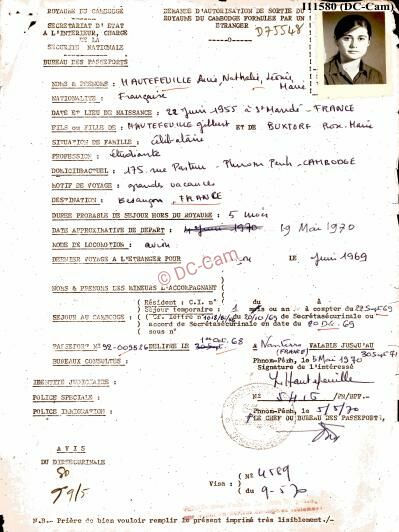 I11580 (DC-Cam)
ROYAUME DU CAMBODGE
SECRETARIAT D'ETAT
A L'INTERIEUR, CHARGE
DE LA
SECURITE NATIONALE
BUREAU DES PASSEPORTS
DEMANDE D'AUTORISATION DE SORTIE DU
ROYAUME DU CAMBODGE FORMULEE PAR UN
ETRANGER
D75548
NOMS & PRENOMS : HAUTEFEUILLE Nathalie, Marie
NATIONALITE : Française
DATE ET LIEU DE NAISSANCE : 22 Juin 1955 à St Mandé - FRANCE
FILS ou FILLE DE : HAUTEFEUILLE Gilbert ET DE BUXTORF Rose-Marie
SITUATION DE FAMILLE : célibataire
PROFESSION : étudiante
DOMICILE ACTUEL : 175 rue Pasteur - Phnom Penh - CAMBODGE
MOTIF DE VOYAGE : grandes vacances
DESTINATION : Besançon, FRANCE
DUREE PROBABLE DE SEJOUR HORS DU ROYAUME : 5 mois
DATE APPROXIMATIVE DE DEPART : 4 Juin 1970 19 Mai 1970
MODE DE LOCOMOTION : avion
DERNIER VOYAGE A L'ETRANGER POUR LE Juin 1969
NOMS & PRENOMS DES MINEURS L'ACCOMPAGNANT
SEJOUR AU CAMBODGE :
Résident : C.I. n° du à
Séjour temporaire : 1 mois ou an. à compter du
Cf. lettre n° du 20/10/69 de Secrétasécurinale ou
accord de Secrétasécurinale en date du 20 DEC. 69
sous n°
PASSEPORT N° 92-009526 DELIVRE LE 1er Oct. 68 à Nanterre (FRANCE) VALABLE JUSQU'AU
BUREAUX CONSULTES :
Phnom-Penh, le 5 Mai 1970
Signature de l'intéressé
Hautefeuille
IDENTITE JUDICIAIRE :
POLICE SPECIALE :
POLICE IMMIGRATION :
N° 5415 /PN/BPP.-
Phnom-Penh, le 5/5/70
LE CHEF DU BUREAU DES PASSEPORTS,
AVIS
DU DIRSECURINALE
Visa :
N° 4589
du 9-5-70
N.B.- Prière de bien vouloir remplir le présent imprimé très lisiblement./-
© DC-Cam